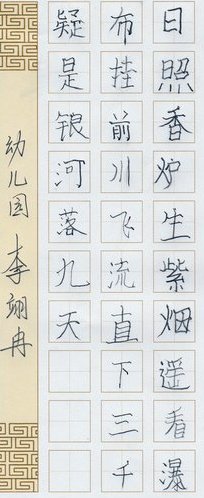 日照香炉生紫烟遥看瀑
布挂前川飞流直下三千
疑是银河落九天
幼儿园 李翊冉